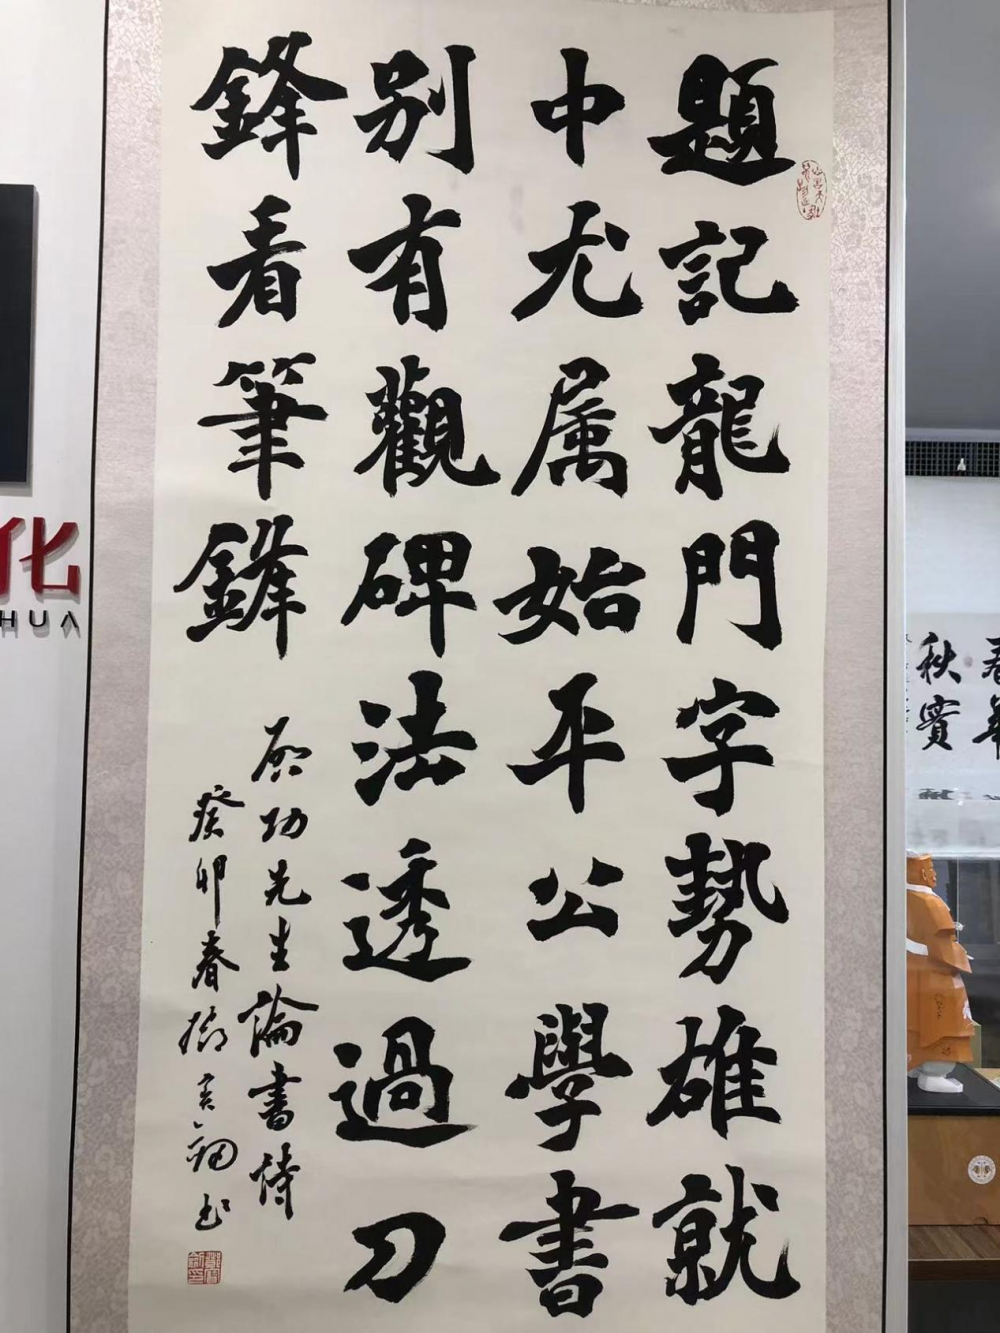 題記龍門字勢雄就
中尤属始平公學書
別有觀碑法透過刀
鋒看筆鋒
啟功先生論書詩
癸卯春
化
HUA
秋實